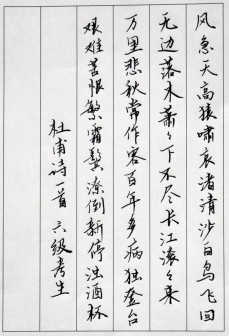 风急天高猿啸哀渚清沙白鸟飞回
无边落木萧々下不尽长江滚々来
万里悲秋常作客百年多病独登台
艰难苦恨繁霜鬓潦倒新停浊酒杯
杜甫诗一首 六级考生